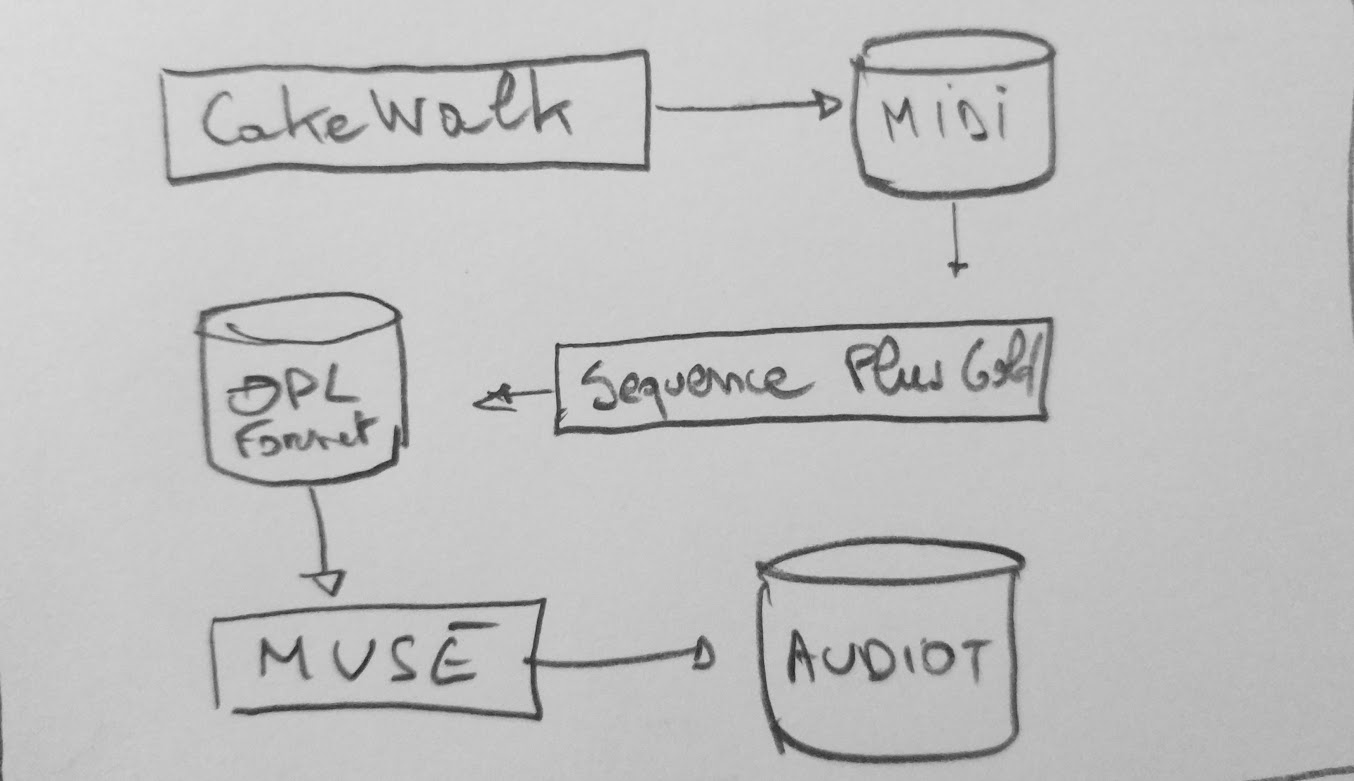 CakeWalk
MiDi
Sequence Plus Gold
OPL
Format
MUSE
AUDIOT